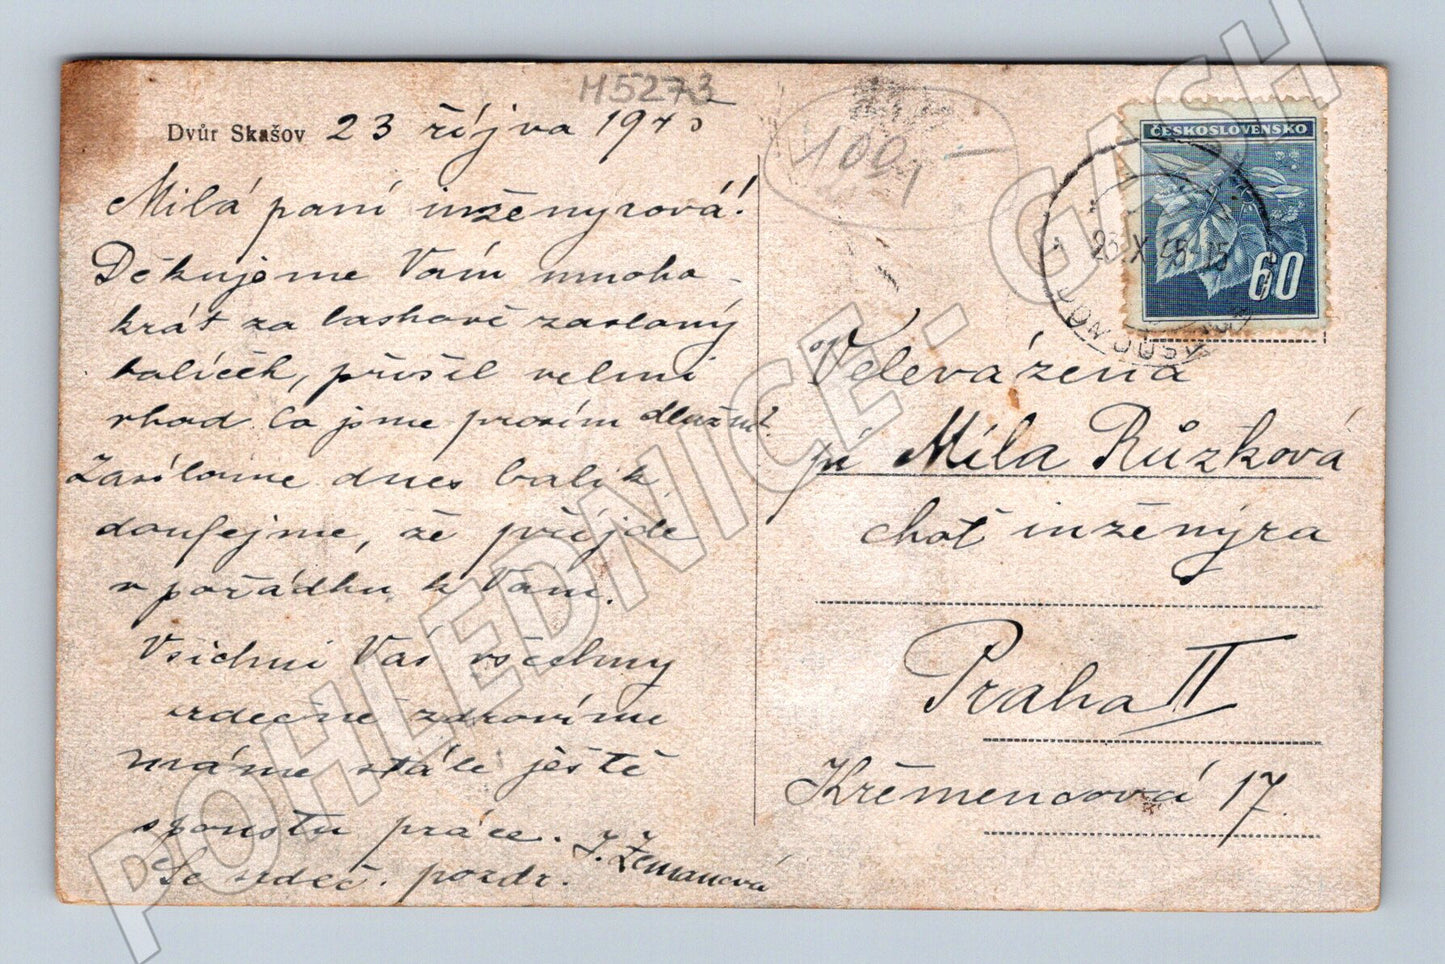 H5273
Dvůr Skašov 23 října 1945
100,-
Milá paní inženýrová!
Děkujeme Vám mnoho-
krát za laskavě zaslaný
balíček, přišel velmi
vhod. Co jsme prosím dlužni?
Zasíláme dnes balík,
doufejme, že přijde
v pořádku k Vám.
Všichni Vás všechny
srdečně zdravíme
máme stále ještě
spoustu práce.
Se srdeč. pozdr. J. Zemanová
ČESKOSLOVENSKO
60
X 45-15
Velevážená
pí Míla Růžková
choť inženýra
Praha II
Křemencová 17
POHLEDNICE - GASH